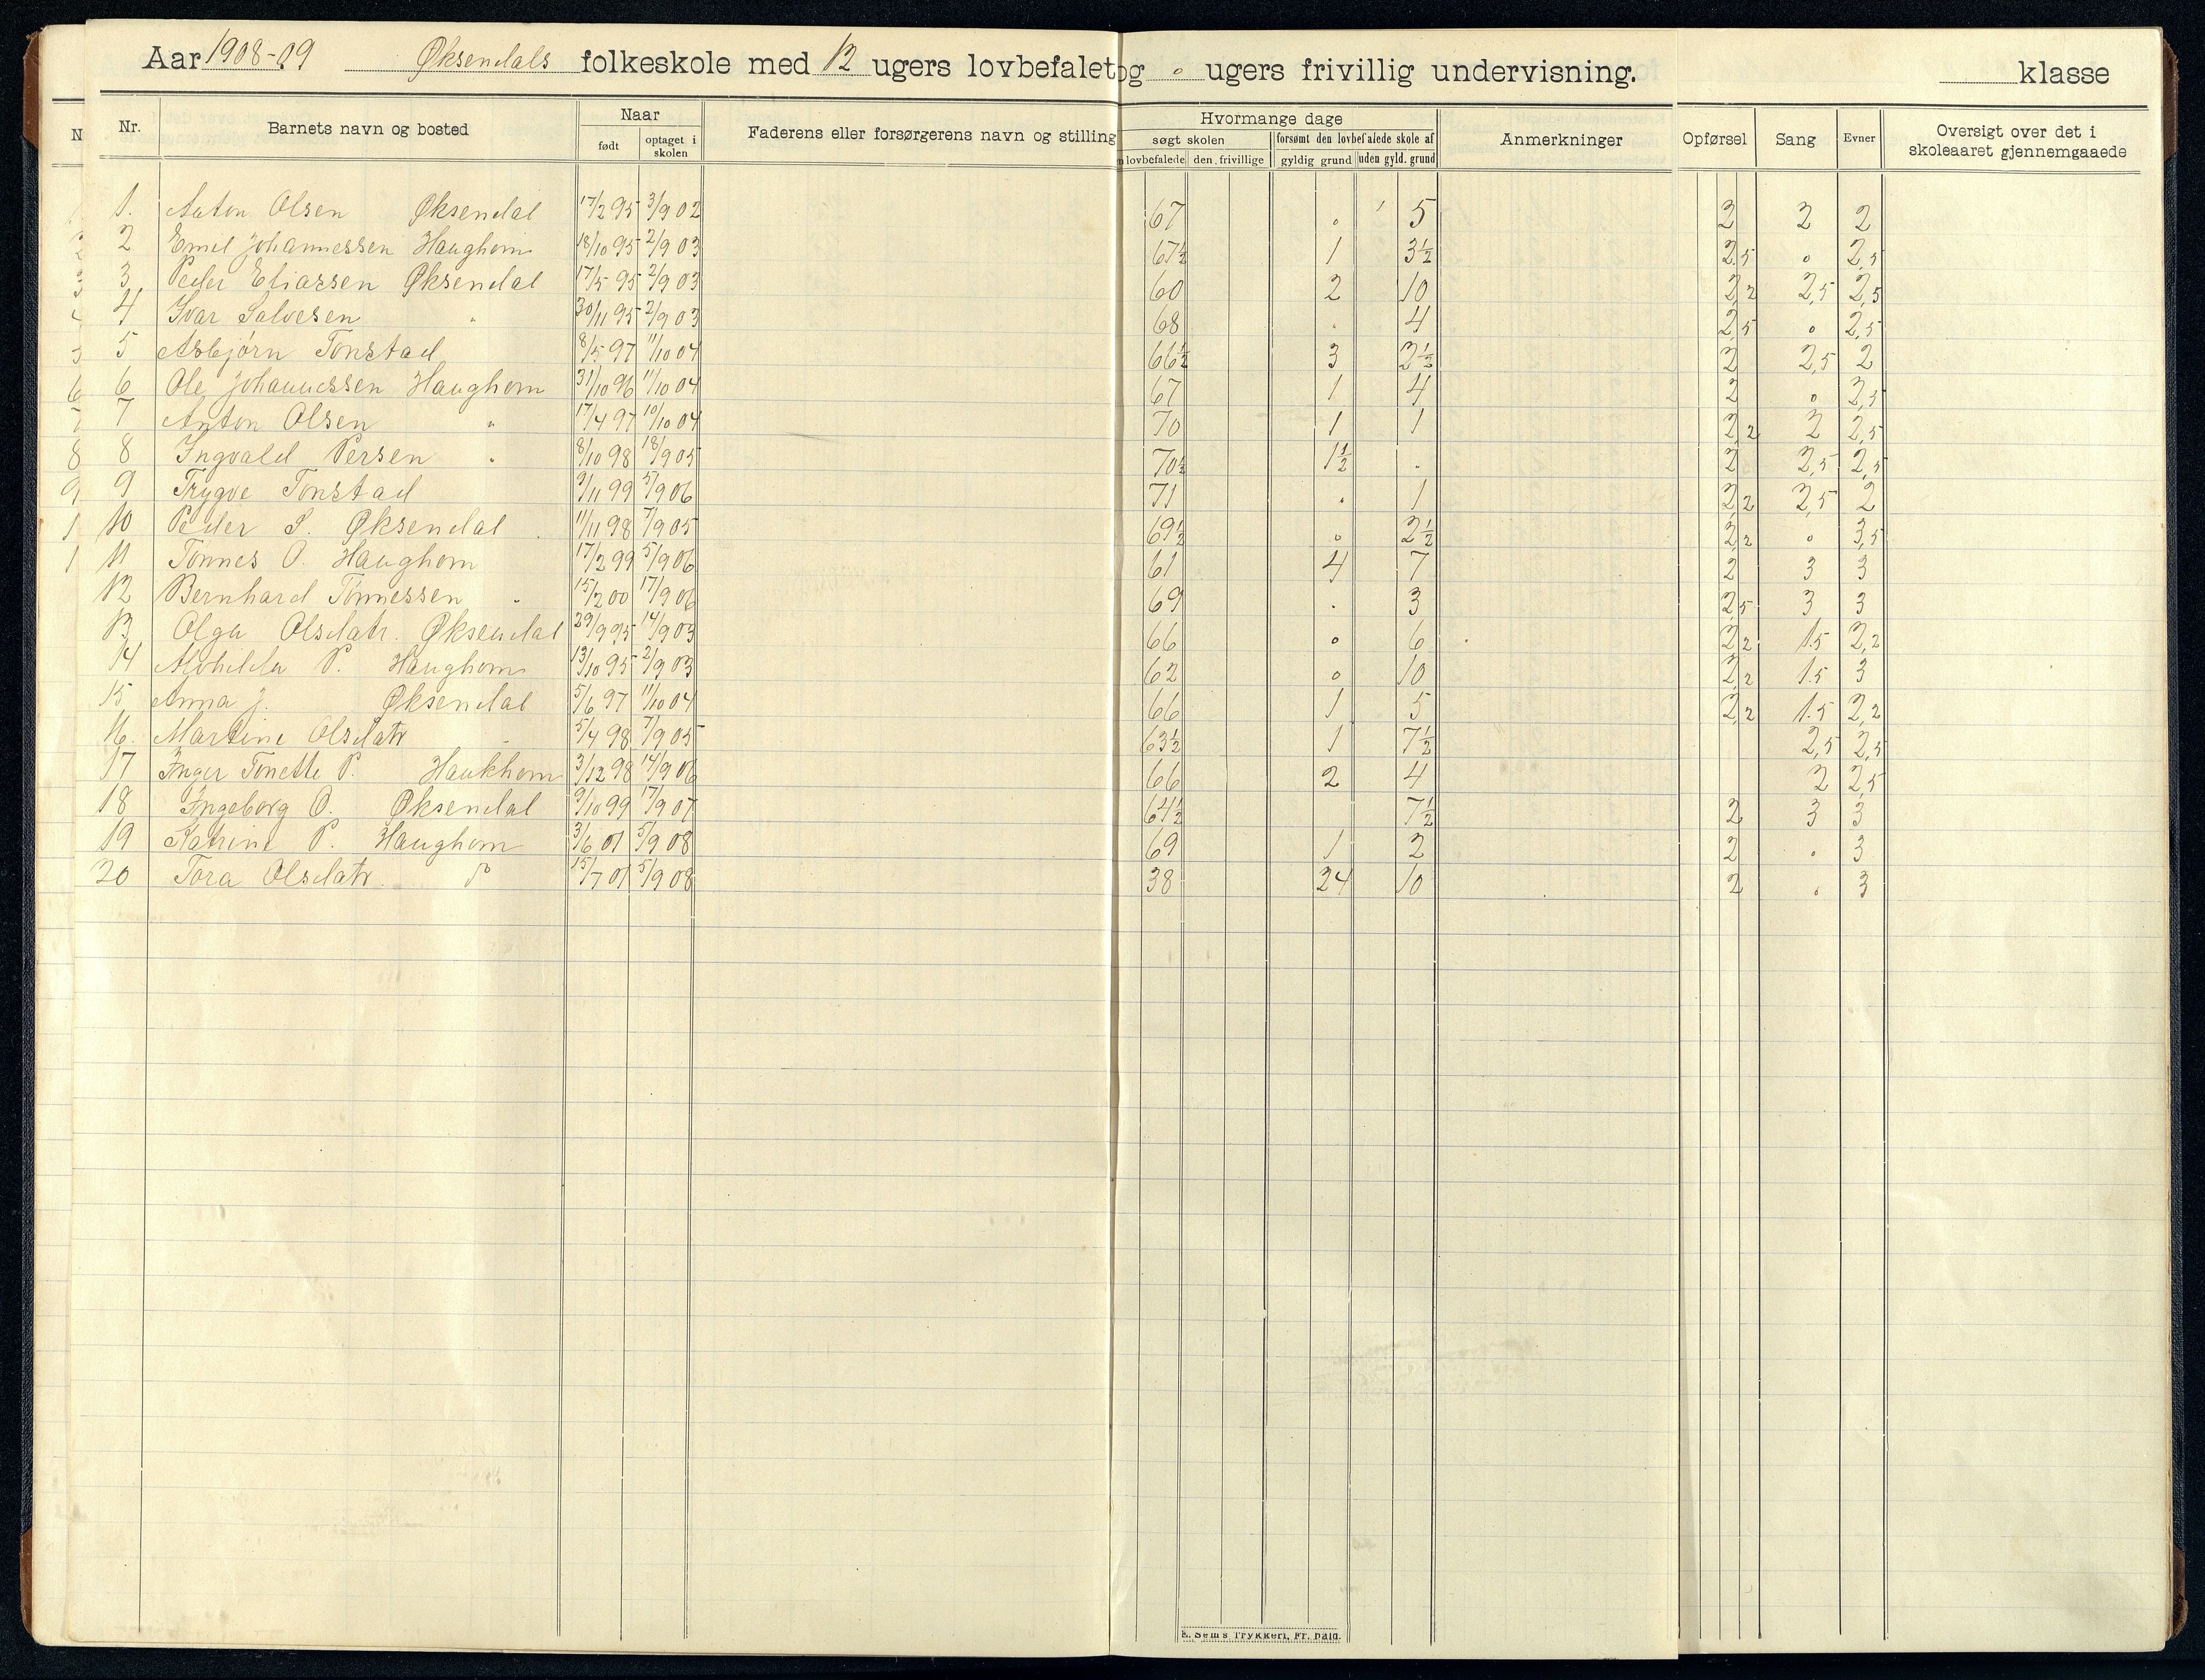 Aar 1908-09 Øksendals folkeskole med 12 ugers lovbefalet og ugers frivillig undervisning. klasse
Nr. Barnets navn og bosted Naar født optaget i skolen Faderens eller forsørgerens navn og stilling Hvormange dage søgt skolen forsømt den lovbefalede skole af lovbefalede den frivillige gyldig grund uden gyld. grund Anmerkninger Opførsel Sang Evner Oversigt over det i skoleaaret gjennemgaaede
1. Anton Olsen Øksendal 17/2 95 3/9 02 67 " 5 2 2 2
2 Emil Johannessen Haughom 18/10 95 2/9 03 67½ 1 3½ 2,5 " 2,5
3 Peder Eliassen Øksendal 17/5 95 2/9 03 60 2 10 2,2 2,5 2,5
4 Ivar Salvesen " 30/11 95 2/9 03 68 " 4 2,5 " 2,5
5 Asbjørn Tonstad 8/5 97 11/10 04 66½ 3 2½ 2 2,5 2
6 Ole Johannessen Haughom 31/10 96 11/10 04 67 1 4 2 " 2,5
7 Anton Olsen " 17/4 97 10/10 04 70 1 1 2,2 2 2,5
8 Ingvald Persen " 8/10 98 18/9 05 70½ 1½ " 2 2,5 2,5
9 Trygve Tonstad 9/11 99 5/9 06 71 " 1 2,2 2,5 2
10 Peder S. Øksendal 11/11 98 7/9 05 69½ " 2½ 2,2 " 3,5
11 Tønnes O. Haughom 17/2 99 5/9 06 61 4 7 2 3 3
12 Bernhard Tønnessen " 15/2 00 17/9 06 69 " 3 2,5 3 3
13 Olga Olsdatr. Øksendal 29/9 95 14/9 03 66 " 6 2,2 1.5 2,2
14 Mathilda P. Haughom 13/10 95 2/9 03 62 " 10 2,2 1.5 3
15 Anna J. Øksendal 5/6 97 11/10 04 66 1 5 2,2 1.5 2,2
16. Martine Olsdatr " 5/4 98 7/9 05 63½ 1 7½ 2,5 2,5
17 Inger Tonette P. Haukhom 3/12 98 14/9 06 66 2 4 2 2,5
18 Ingeborg O. Øksendal 9/10 99 17/9 07 64½ 7½ 2 3 3
19 Katrine P. Haughom 3/6 01 5/9 08 69 1 2 2 " 3
20 Tora Olsdatr. do 15/7 01 5/9 08 38 24 10 2 " 3
E. Sem's Trykkeri, Fr. hald.